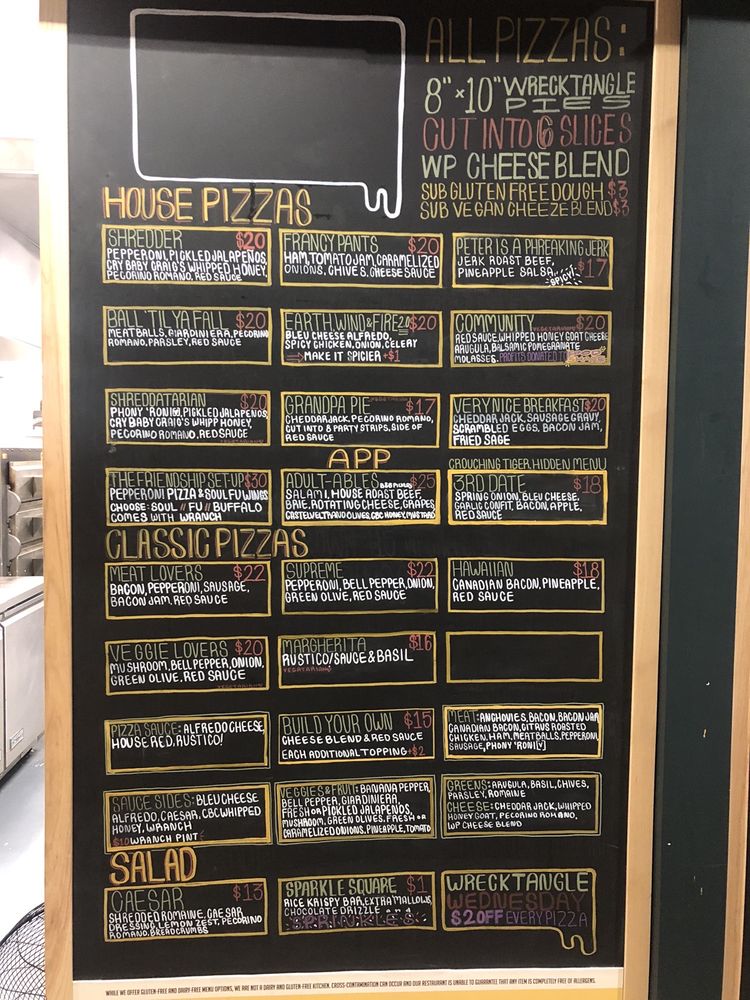 ALL PIZZAS:
8" x 10" WRECKTANGLE
PIES
CUT INTO 6 SLICES
WP CHEESE BLEND
SUB GLUTEN FREE DOUGH $3
SUB VEGAN CHEEZE BLEND $3
HOUSE PIZZAS
SHREDDER $20
PEPPERONI, PICKLED JALAPEÑOS,
CRY BABY CRAIG'S WHIPPED HONEY,
PECORINO ROMANO, RED SAUCE
FRANCY PANTS $20
HAM, TOMATO JAM, CARAMELIZED
ONIONS, CHIVES, CHEESE SAUCE
PETER IS A PHREAKING JERK
JERK ROAST BEEF,
PINEAPPLE SALSA $17
SPICY!
BALL 'TIL YA FALL $20
MEATBALLS, GIARDINIERA, PECORINO
ROMANO, PARSLEY, RED SAUCE
EARTH, WIND & FIRE 2.0 $20
BLEU CHEESE ALFREDO,
SPICY CHICKEN, ONION, CELERY
MAKE IT SPICIER +$1
COMMUNITY VEGETARIAN $20
RED SAUCE, WHIPPED HONEY GOAT CHEESE
ARUGULA, BALSAMIC POMEGRANATE
MOLASSES. PROFITS DONATED TO
SHREDDATARIAN $20
PHONY 'RONI, PICKLED JALAPEÑOS,
CRY BABY CRAIG'S WHIPP HONEY,
PECORINO ROMANO, RED SAUCE
VEGETARIAN
GRANDPA PIE VEGETARIAN $17
CHEDDAR JACK, PECORINO ROMANO,
CUT INTO 8 PARTY STRIPS, SIDE OF
RED SAUCE
VERY NICE BREAKFAST $20
CHEDDAR JACK, SAUSAGE GRAVY,
SCRAMBLED EGGS, BACON JAM,
FRIED SAGE
APP
CROUCHING TIGER, HIDDEN MENU
THE FRIENDSHIP SET-UP $30
PEPPERONI PIZZA & SOUL FU WINGS
CHOOSE: SOUL // FU // BUFFALO
COMES WITH WRANCH
ADULT-ABLES B&B PICKLES $25
SALAMI, HOUSE ROAST BEEF,
BRIE, ROTATING CHEESE, GRAPES,
CASTELVELTRANO OLIVES, CBC HONEY, MUSTARD
3RD DATE $18
SPRING ONION, BLEU CHEESE,
GARLIC CONFIT, BACON, APPLE,
RED SAUCE
CLASSIC PIZZAS
MEAT LOVERS $22
BACON, PEPPERONI, SAUSAGE,
BACON JAM, RED SAUCE
SUPREME $22
PEPPERONI, BELL PEPPER, ONION,
GREEN OLIVE, RED SAUCE
HAWAIIAN $18
CANADIAN BACON, PINEAPPLE,
RED SAUCE
VEGGIE LOVERS $20
MUSHROOM, BELL PEPPER, ONION,
GREEN OLIVE, RED SAUCE
VEGETARIAN
MARGHERITA $16
RUSTICO/SAUCE & BASIL
VEGETARIAN
PIZZA SAUCE: ALFREDO CHEESE,
HOUSE RED, RUSTICO!
BUILD YOUR OWN $15
CHEESE BLEND & RED SAUCE
EACH ADDITIONAL TOPPING +$2
MEAT: ANCHOVIES, BACON, BACON JAM
CANADIAN BACON, CITRUS ROASTED
CHICKEN, HAM, MEATBALLS, PEPPERONI,
SAUSAGE, PHONY 'RONI (V)
SAUCE SIDES: BLEU CHEESE
ALFREDO, CAESAR, CBC WHIPPED
HONEY, WRANCH
$10 WRANCH PINT
VEGGIES & FRUIT: BANANA PEPPER,
BELL PEPPER, GIARDINIERA,
FRESH OR PICKLED JALAPENOS,
MUSHROOM, GREEN OLIVES, FRESH OR
CARAMELIZED ONIONS, PINEAPPLE, TOMATO
GREENS: ARUGULA, BASIL, CHIVES,
PARSLEY, ROMAINE
CHEESE: CHEDDAR JACK, WHIPPED
HONEY GOAT, PECORINO ROMANO,
WP CHEESE BLEND
SALAD
CAESAR $13
SHREDDED ROMAINE, CAESAR
DRESSING, LEMON ZEST, PECORINO
ROMANO, BREADCRUMBS
SPARKLE SQUARE $1
RICE KRISPY BAR, EXTRA MALLOWS,
CHOCOLATE DRIZZLE and
SPRINKLES
WRECKTANGLE
WEDNESDAY
$2 OFF EVERY PIZZA
WHILE WE OFFER GLUTEN-FREE AND DAIRY-FREE MENU OPTIONS, WE ARE NOT A DAIRY AND GLUTEN-FREE KITCHEN. CROSS-CONTAMINATION CAN OCCUR AND OUR RESTAURANT IS UNABLE TO GUARANTEE THAT ANY ITEM IS COMPLETELY FREE OF ALLERGENS.